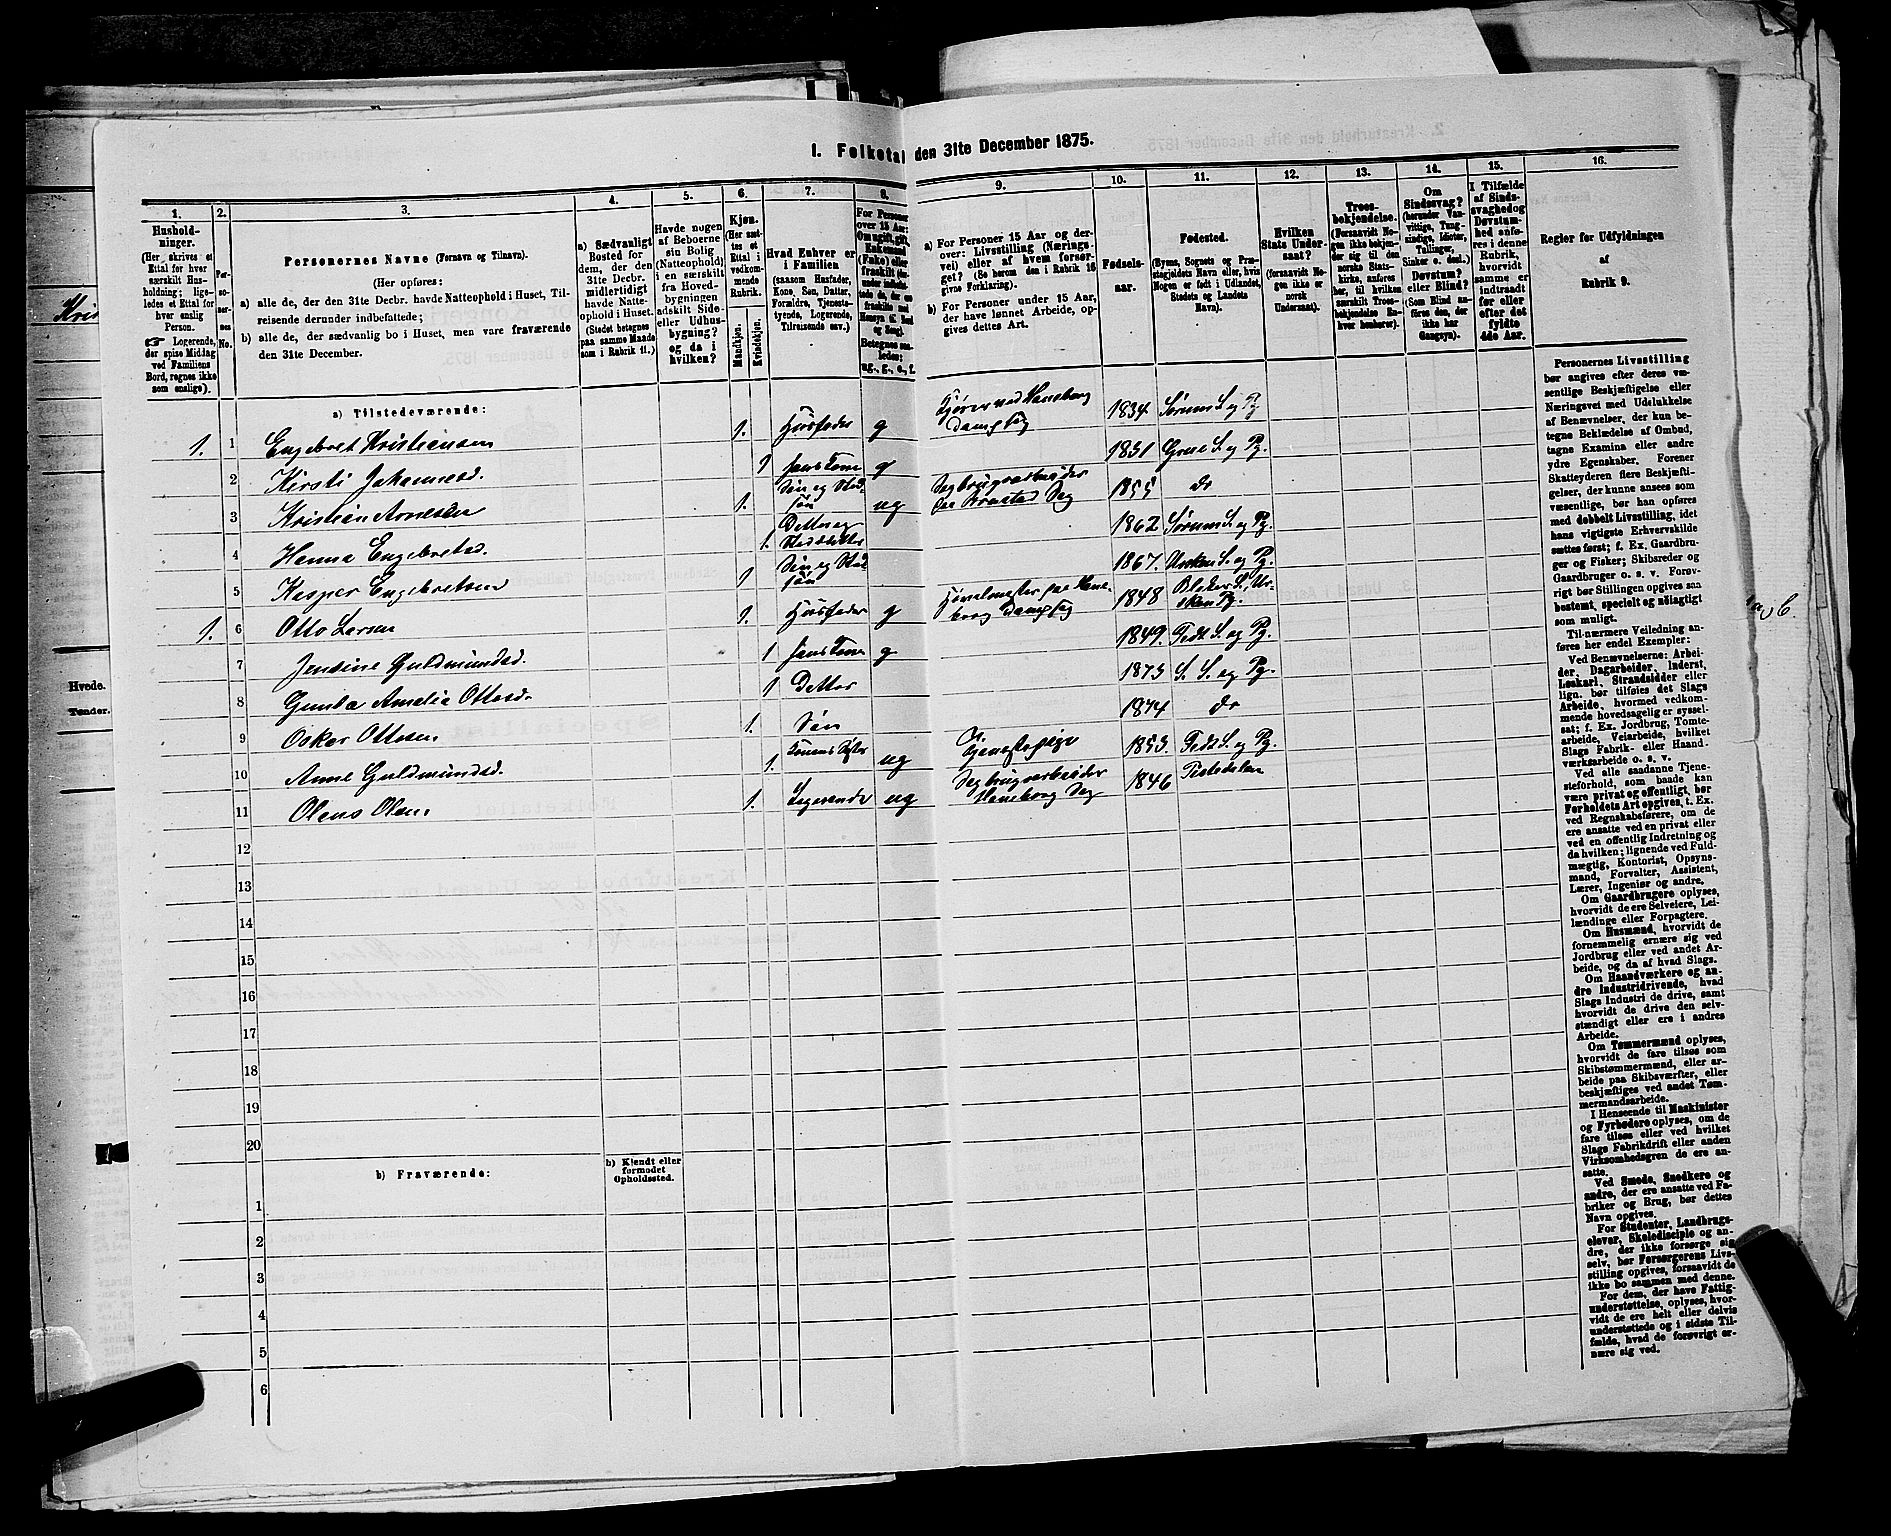 I. Folketal den 31te December 1875.
1.
Hushold-
ninger.
(Her skrives et
Ettal for hver
særskilt Hus-
holdning; lige-
ledes et Ettal for
hver enslig
Person.
☞ Logerende,
der spise Middag
ved Familiens
Bord, regnes ikke
som enslige).
2.
Per-
so-
ner-
nes
No.
3.
Personernes Navne (Fornavn og Tilnavn).
(Her opføres:
a) alle de, der den 31te Decbr. havde Natteophold i Huset, Til-
reisende derunder indbefattede;
b) alle de, der sædvanlig bo i Huset, men vare fraværende
den 31te December.
4.
a) Sædvanligt
Bosted for
dem, der den
31te Decbr.
midlertidigt
havde Natte-
ophold i Huset.
(Stedet betegnes
paa samme Maade
som i Rubrik 11.)
5.
Havde nogen
af Beboerne
sin Bolig
(Natteophold)
i en særskilt
fra Hoved-
bygningen
adskilt Side-
eller Udhus-
bygning?
og da i
hvilken?
6.
Kjøn.
(Her sæt-
tes et
Ettal i
vedkom-
mende
Rubrik.
Mandkjøn.
Kvindekjøn.
7.
Hvad Enhver er
i Familien
(saasom Husfader,
Kone, Søn, Datter,
Forældre, Tjeneste-
tyende, Logerende,
Tilreisende osv.)
8.
For Personer
over 15 Aar:
Om ugift, gift,
Enkemand
(Enke) eller
fraskilt
Betegnes saa-
ledes:
ug., g., e., f.
9.
a) For Personer 15 Aar og der-
over: Livsstilling (Nærings-
vei) eller af hvem forsør-
get? (Se herom den i Rubrik 16
givne Forklaring).
b) For Personer under 15 Aar,
der have lønnet Arbeide, op-
gives dettes Art.
10.
Fødsels-
aar.
11.
Fødested.
(Byens, Sognets og Præ-
stegjeldets Navn eller, hvis
Nogen er født i Udlandet,
Stedets og Landets
Navn).
12.
Hvilken
Stats Under-
saat?
(forsaavidt No-
gen ikke er
norsk
Undersaat).
13.
Troes-
bekjendelse.
(Forsaavidt No-
gen ikke bekjen-
der sig til den
norske Stats-
kirke, anføres
her, til hvilken
særskilt Troes-
bekjendelse En-
hver henhører).
14.
Om
Sindssvag?
(herunder Van-
vittige, Tung-
sindige, Idioter,
Tullinger,
Sinker o. desl.)
Døvstum?
eller Blind?
(Som Blind an-
føres den, der
ikke har
Gangsyn).
15.
I Tilfælde
af Sinds-
svaghed og
Døvstum-
hed anfø-
res i denne
Rubrik,
hvorvidt
samme er
indtraadt
før eller
efter det
fyldte
4de Aar.
16.
Regler for Udfyldningen
af
Rubrik 9.
a) Tilstedeværende:
1. 1 Engebret Kristiansen 1. Husfader g Kjører ved Haneborg Dampsag 1834 Sørum S. og Pg.
2 Kirsti Johannesd. 1 hans Kone g 1831 Grue S. og Pg.
3 Kristian Arnesen 1. Søn og Sted-søn ug Sagbrugsarbeider paa Krosted Sag 1855 do
4 Hanna Engebretsd. 1. Datter og Steddatter 1862 Sørum S. og Pg.
5 Kasper Engebretsen 1 Søn og Stedsøn 1867. Urskou S. og Pg.
1. 6 Otto Larsen 1. Husfader g Høvelmester paa Haneborg Dampsag 1848 Blaker S. Urskou Pg.
7 Jensine Guldmundsd. 1 hans Kone g 1849. Fedt S. og Pg.
8 Gunda Amalia Ottosd. 1 Datter 1873 S. S. og Pg.
9 Oskar Ottosen 1. Søn 1874 do
10 Anne Guldmundsd. 1. Konens Søster ug Tjenestepige 1853. Fedt S. og Pg.
11 Olaus Olsen 1. Logerende ug Sagbrugsarbeider Haneborg Sag 1846 Tistedalen
12
13
14
15
16
17
18
19
20
b) Fraværende:
b) Kjendt eller
formodet
Opholdssted.
1
2
3
4
5
6
Personernes Livsstilling
bør angives efter deres væ-
sentlige Beskjæftigelse eller
Næringsvei med Udelukkelse
af Benævnelser, der kun be-
tegne Beklædelse af Ombud,
tagne Examina eller andre
ydre Egenskaber. Forener
Skatteyderen flere Beskjæfti-
gelser, der kunne ansees som
væsentlige, bør han opføres
med dobbelt Livsstilling, idet
hans vigtigste Erhvervskilde
sættes først; f. Ex. Gaardbru-
ger og Fisker; Skibsreder og
Gaardbruger o. s. v. Forøv-
rigt bør Stillingen opgives saa
bestemt, specielt og nøiagtigt
som muligt.
Til nærmere Veiledning an-
føres her endel Exempler:
Ved Benævnelserne: Arbei-
der, Dagarbeider, Inderst,
Løskarl, Strandsidder eller
lign. bør tilføies det Slags
Arbeide, hvormed vedkom-
mende hovedsagelig er syssel-
sat; f. Ex. Jordbrug, Tomte-
arbeide, Veiarbeide, hvilket
Slags Fabrik- eller Haand-
værksarbeide o. s. v.
Ved alle saadanne Tjene-
steforhold, som baade kan
være privat og offentligt, bør
Forholdets Art opgives, t. Ex.
ved Regnskabsførere, om de
ere ansatte ved en privat eller
ved en offentlig Indretning og
da hvilken; lignende ved Fuld-
mægtig, Kontorist, Opsyns-
mand, Forvalter, Assistent,
Lærer, Ingeniør og andre.
Om Gaardbrugere oplyses,
hvorvidt de ere Selveiere, Lei-
lændinge eller Forpagtere.
Om Husmænd, hvorvidt de
fornemmelig ernære sig ved
Jordbrug eller ved andet Ar-
beide, og da af hvad Slags.
Om Haandværkere og an-
dre Industridrivende, hvad
Slags Industri de drive, samt
hvorvidt de drive den selv-
stændigt eller ere i andres
Arbeide.
Om Tømmermænd oplyses,
hvorvidt de fare tilsøs som
Skibstømmermænd, eller ar-
beide paa Skibsværfter, eller
beskjæftiges ved andet Tøm-
mermandsarbeide.
I Henseende til Maskinister
og Fyrbødere oplyses, om de
fare tilsøs eller ved hvilket
Slags Fabrikdrift eller anden
Virksomhedsgren de ere an-
satte.
Ved Smede, Snedkere og
andre, der ere ansatte ved Fa-
briker og Brug, bør dettes
Navn opgives.
For Studenter, Landbrugs-
elever, Skoledisciple og an-
dre, der ikke forsørge sig
selv, bør Forsørgerens Livs-
stilling opgives, forsaavidt de
ikke bo sammen med denne.
For dem, der have Fattig-
understøttelse, oplyses, hvor-
vidt de ere helt eller delvis
understøttede og i sidste Til-
fælde, hvad de forøvrigt er-
nære sig ved.
Hvede.
Tønder.